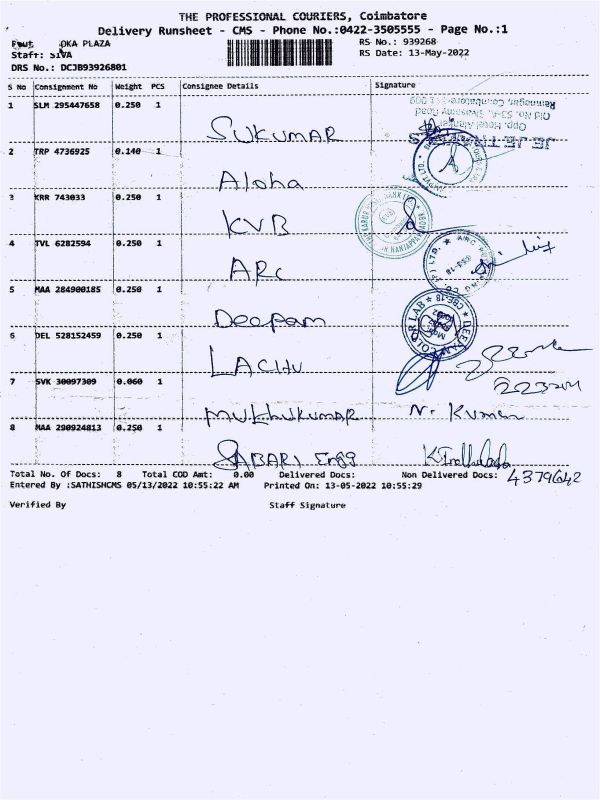 THE PROFESSIONAL COURIERS, Coimbatore
Delivery Runsheet - CMS - Phone No.:0422-3505555 - Page No.:1
OKA PLAZA RS No.: 939268
Staff: SIVA RS Date: 13-May-2022
DRS No.: DCJB93926801
S No Consignment No Weight PCS Consignee Details Signature
1 SLM 295447658 0.250 1
SUKUMAR
2 TRP 4736925 0.140 1
Aloha
3 KRR 743033 0.250 1
KVB
4 TVL 6282594 0.250 1
ARC
5 MAA 284900185 0.250 1
Deepam
6 DEL 528152459 0.250 1
LACHU
7 SVK 30097309 0.060 1
MUTHUKUMAR N. Kumar
8 MAA 290924813 0.250 1
SABARI Engg
Opp. Hotel Alankar
Ramnagar, Coimbatore
DEEPAM COLOR LAB
Total No. Of Docs: 8 Total COD Amt: 0.00 Delivered Docs: Non Delivered Docs: 4379642
Entered By :SATHISHCMS 05/13/2022 10:55:22 AM Printed On: 13-05-2022 10:55:29
Verified By Staff Signature